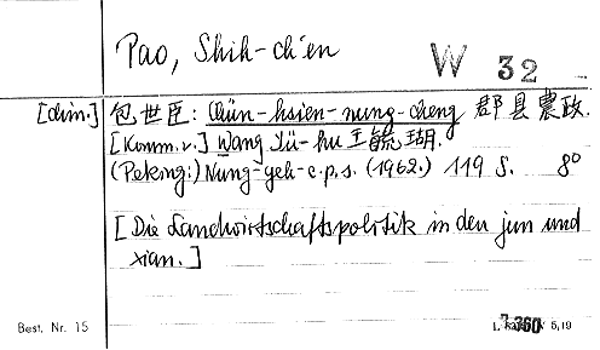 Pao, Shih-ch'en
W 32
[chin.] 包世臣: Chün-hsien-nung-cheng 郡县農政.
[Komm. v.] Wang Yü-hu 王毓瑚.
(Peking:) Nung-yeh-c.p.s. (1962.) 119 S. 8°
[Die Landwirtschaftspolitik in den jun und
xian.]
Best. Nr. 15
5,19